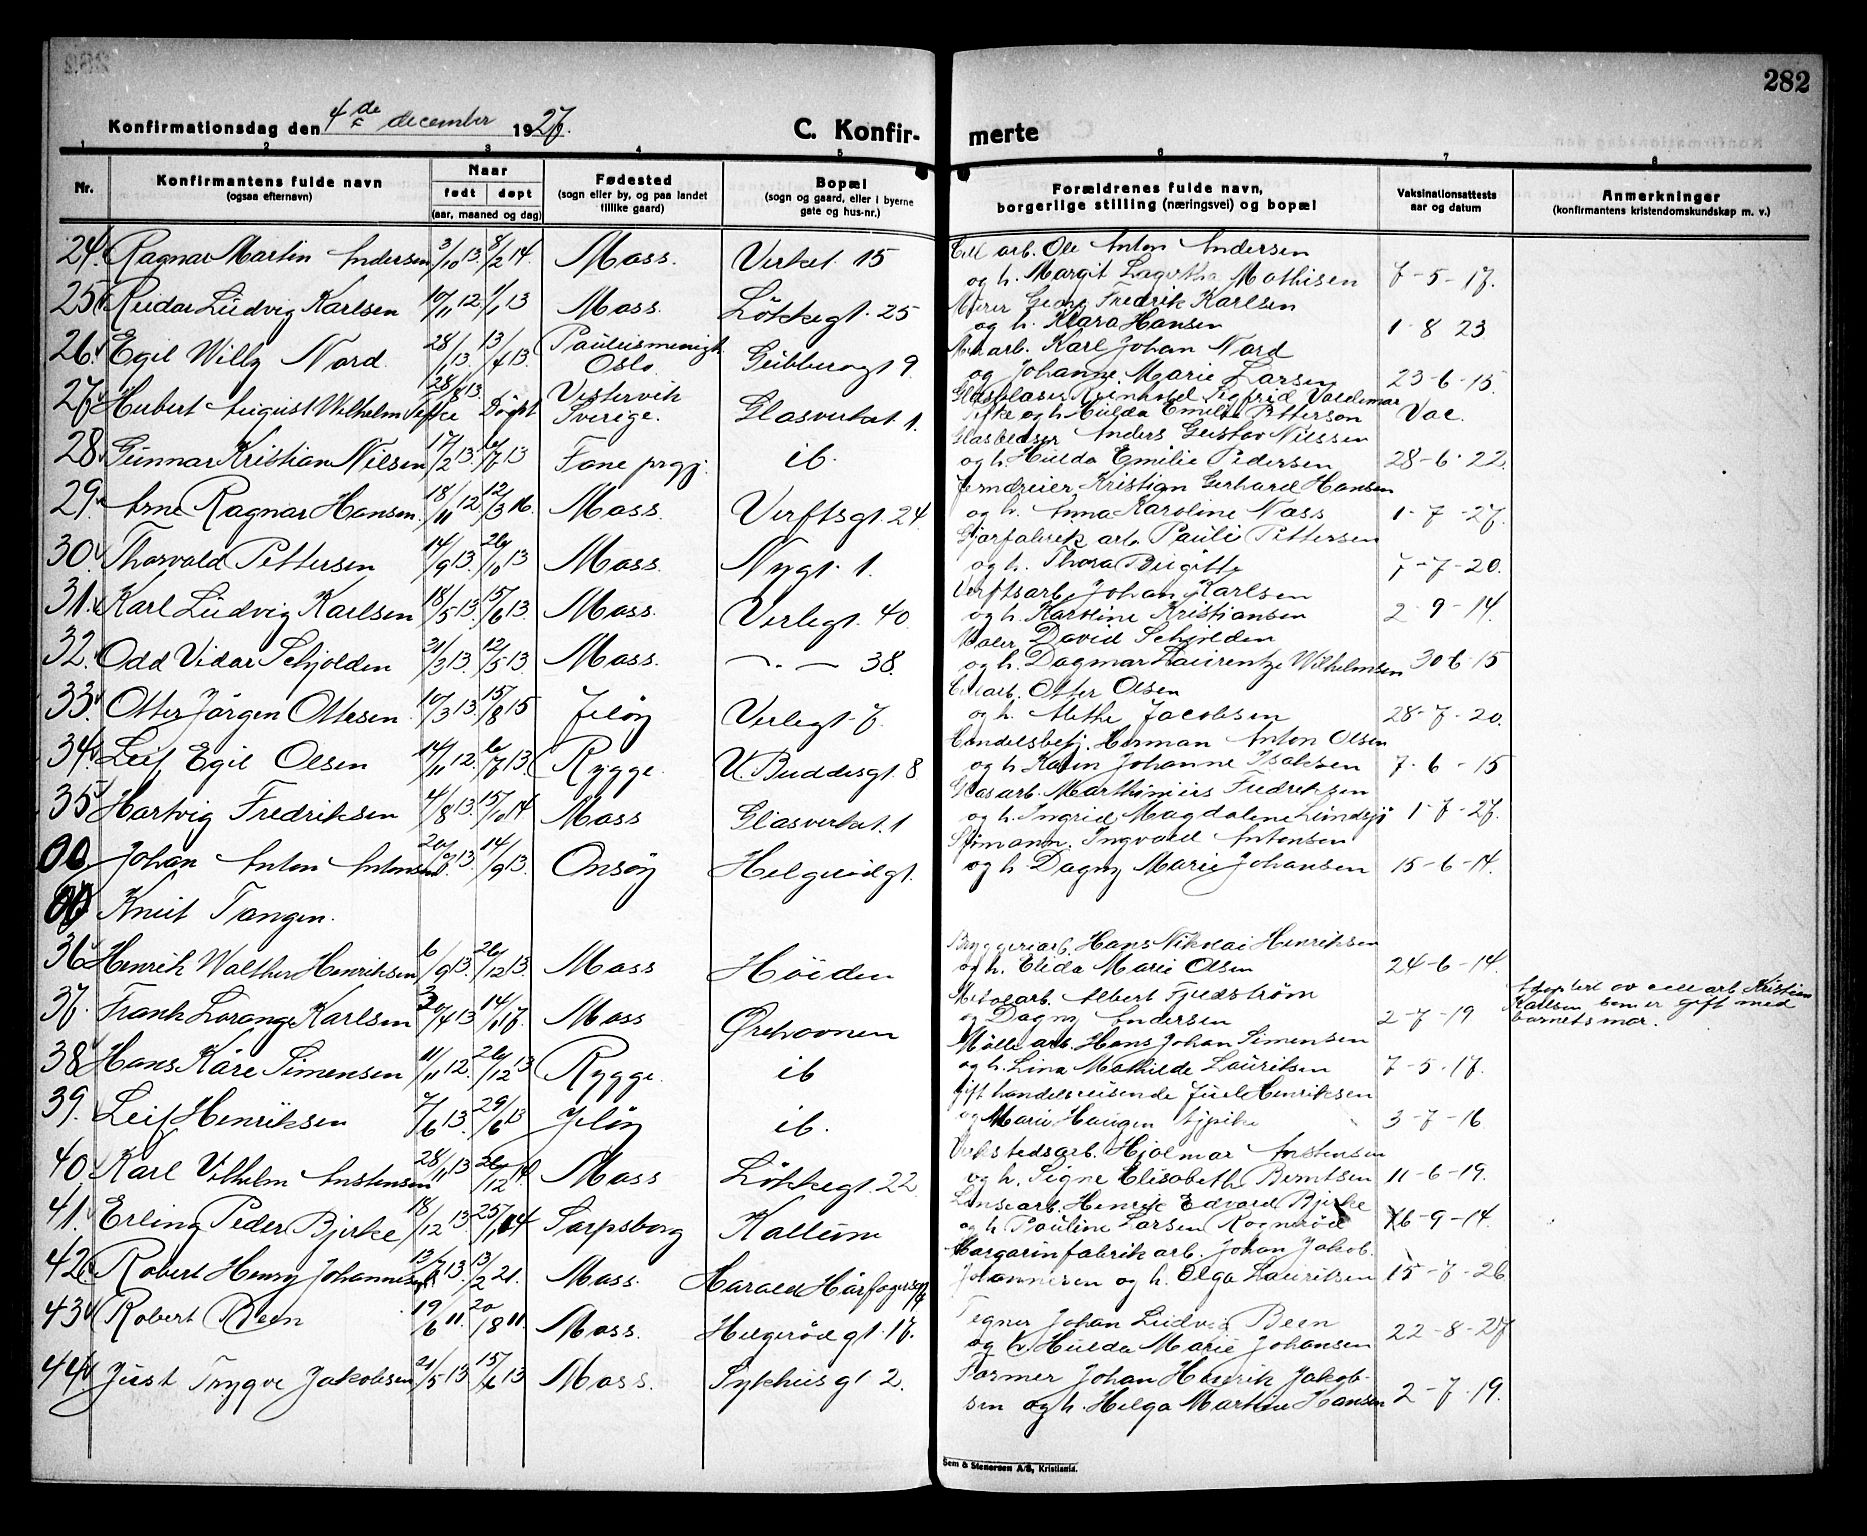 282
Konfirmationsdag den 4de december 1927.
C. Konfirmerte
1 2 3 4 5 6 7 8
Nr.
Konfirmantens fulde navn
(ogsaa efternavn)
Naar
født døpt
(aar, maaned og dag)
Fødested
(sogn eller by, og paa landet
tillike gaard)
Bopæl
(sogn og gaard, eller i byerne
gate og hus-nr.)
Forældrenes fulde navn,
borgerlige stilling (næringsvei) og bopæl
Vaksinationsattests
aar og datum
Anmerkninger
(konfirmantens kristendomskundskap m. v.)
24. Ragnar Martin Andersen 3/10 13. 8/2 14. Moss. Verket 15 arb. Ole Anton Andersen
og h. Margit Lagertha Mathisen 7-5-17.
25. Reidar Ludvig Karlsen 10/11 12. 1/1 13 Moss. Løkkegt. 25 Murer Georg Fredrik Karlsen
og h. Klara Hansen 1-8 23
26. Egil Willy Nord. 28/1 13. 13/4 13. Paulusmenigh. Oslo. Gubberogt 9. arb. Karl Johan Nord
og Johanne Marie Larsen 23-6-15.
27. Hubert August Wilhelm Tefke 28/8 13. Døpt Vestervik Sverige. Glasverket 1. Glasblaser Reinhold Sigfrid Valdemar
Tefke og h. Hulda Emilie Petterson Vac.
28. Gunnar Kristian Nilsen 17/2 13. 6/7 13 Fane prgj. ib. Glasblaser Anders Gustav Nilssen
og h. Hulda Emilie Pedersen 28-6-22.
29. Arne Ragnar Hansen 18/11 12. 12/3 16. Moss. Verftsgt. 24. Jerndreier Kristian Gerhard Hansen
og h. Anna Karoline Næss 1-7-27.
30. Thorvald Pettersen 14/9 13. 26/10 13 Moss. Nygt. 1. Gjærfabrik arb. Pauli Pettersen
og h. Thora Birgitte 7-7-20.
31. Karl Ludvig Karlsen 18/5 13. 15/6 13. Moss. Verlegt. 40. Verftsarb. Johan Karlsen
og h. Karoline Kristiansen 2-9-14.
32. Odd Vidar Schjolden 31/3 13. 12/5 13 Moss. —.— 38. Maler David Schjolden
og h. Dagmar Laurentze Wilhelmsen 30-6-15
33. Otter Jørgen Ottesen. 10/3 13. 15/8 15 Jeløy Verlegt. 7. arb. Otter Olsen
og h. Alethe Jacobsen 28-7-20.
34. Leif Egil Olsen 14/11 12. 6/7 13. Rygge. V. Buddesgt. 8 Handelsbetj. Herman Anton Olsen
og h. Karen Johanne Isaksen 7-6-15
35. Hartvig Fredriksen 4/8 13. 15/10 14 Moss Glasverket. 1 Glasarb. Marthinius Fredriksen
og h. Ingrid Magdalene Lindsjø 1-7-27.
00 Johan Anton Antonsen 20/7 13. 14/9 13. Onsøy Helgerødgt. Styrmann Ingvald Antonsen
og h. Dagny Marie Johansen 15-6-14.
00 Knut Tangen.
36. Henrik Walther Henriksen 6/9 13. 26/12 13. Moss Höiden Bryggeriarb. Hans Nikolai Henriksen
og h. Elida Marie Olsen 24-6-14.
37. Frank Lorange Karlsen 30/4 13 14/1 17. Moss Ørehavnen Metalarb. Albert Fjedstrøm
og Dagny Andersen 2-7-19 Adoptert av arb. Kristian
Karlsen som er gift med
barnets mor.
38. Hans Kåre Simensen 11/11 12. 26/12 13 Rygge. ib Mølle arb. Hans Johan Simensen
og h. Lina Mathilde Lauritsen 7-5-17.
39. Leif Henriksen 7/6 13. 29/6 13 Jeløy ib. Gift handelsreisende Juul Henriksen
og Marie Haugen ugift pike 3-7-16
40. Karl Vilhelm Anstensen 28/11 13 26/12 14. Moss Løkkegt. 22 Verkstedsarb. Hjalmar Anstensen
og h. Signe Elisabeth Berntsen 11-6-19.
41. Erling Peder Bjerke 18/12 13. 25/1 14 Sarpsborg Kallum arb. Henrik Edvard Bjerke
og h. Pauline Larsen Rognerød 16-9-14.
42. Robert Henry Johannesen 13/7 13. 13/2 21. Moss. Harald Hårfagersgt Margarinfabrik arb. Johan Jakob
Johannesen og h. Olga Lauritsen 15-7-26
43. Robert Been 19/6 11. 20/8 11. Moss. Helgerødgt. 17. Tegner Johan Ludvig Been
og h. Hulda Marie Johansen 22-8-27
44. Just Trygve Jakobsen 21/5 13 15/6 13 Moss. Sykhusgt 2. Former Johan Henrik Jakob-
sen og h. Helga Martine Hansen 2-7-19.
Sem & Stenersen A/S, Kristiania.